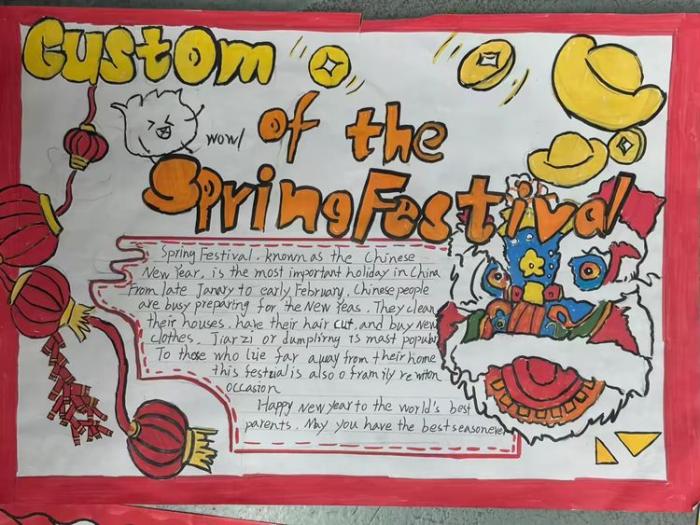 Custom
wow!
of the
Spring Festival
Spring Festival. known as the Chinese
New Year, is the most important holiday in China
From late Janary to early February, Chinese people
are busy preparing for the New Yeas. They clean
their houses. have their hair cut. and buy new
clothes. Jiar zi or dumplirng is mast popular
To those who live far away from their home
this festzial is also o framily re
occasion
Happy New year to the world's best
parents. May you have the best season ever